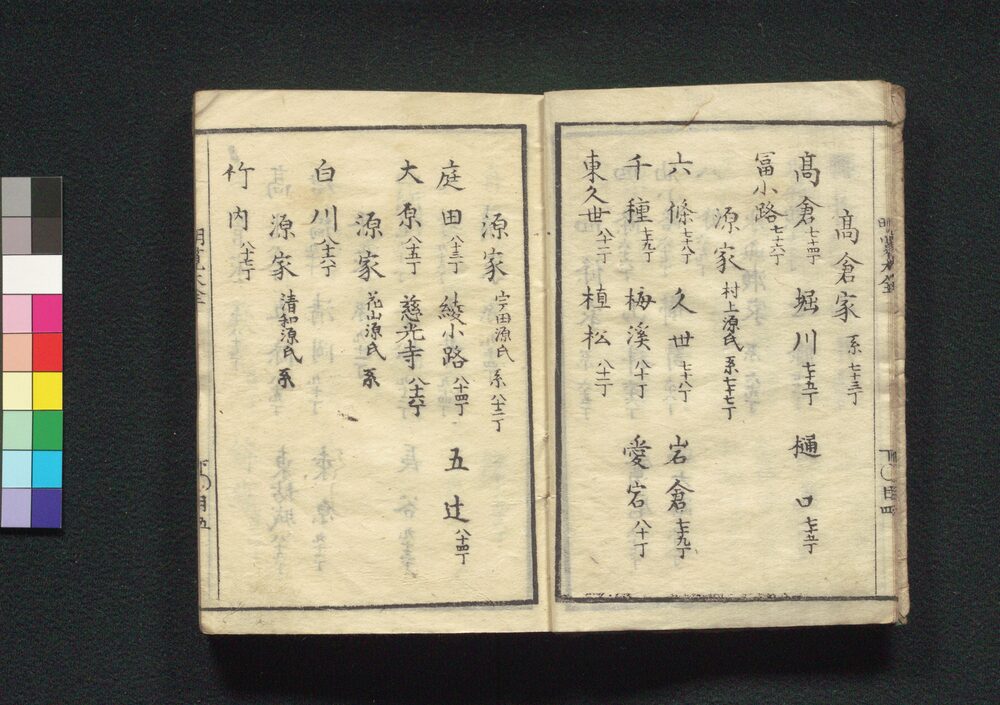 髙倉家 系七十三丁
髙倉七十四丁 堀川七十五丁 樋口七十五丁
冨小路七十六丁
源家 村上源氏 系七十七丁
六條七十八丁 久世七十八丁 岩倉七十九丁
千種七十九丁 梅溪八十丁 愛宕八十丁
東久世八十一丁 植松八十一丁
源家 宇田源氏 系八十二丁
庭田八十三丁 綾小路八十四丁 五辻八十四丁
大原八十五丁 慈光寺八十六丁
源家 花山源氏 系
白川八十六丁
源家 清和源氏 系
竹内八十七丁